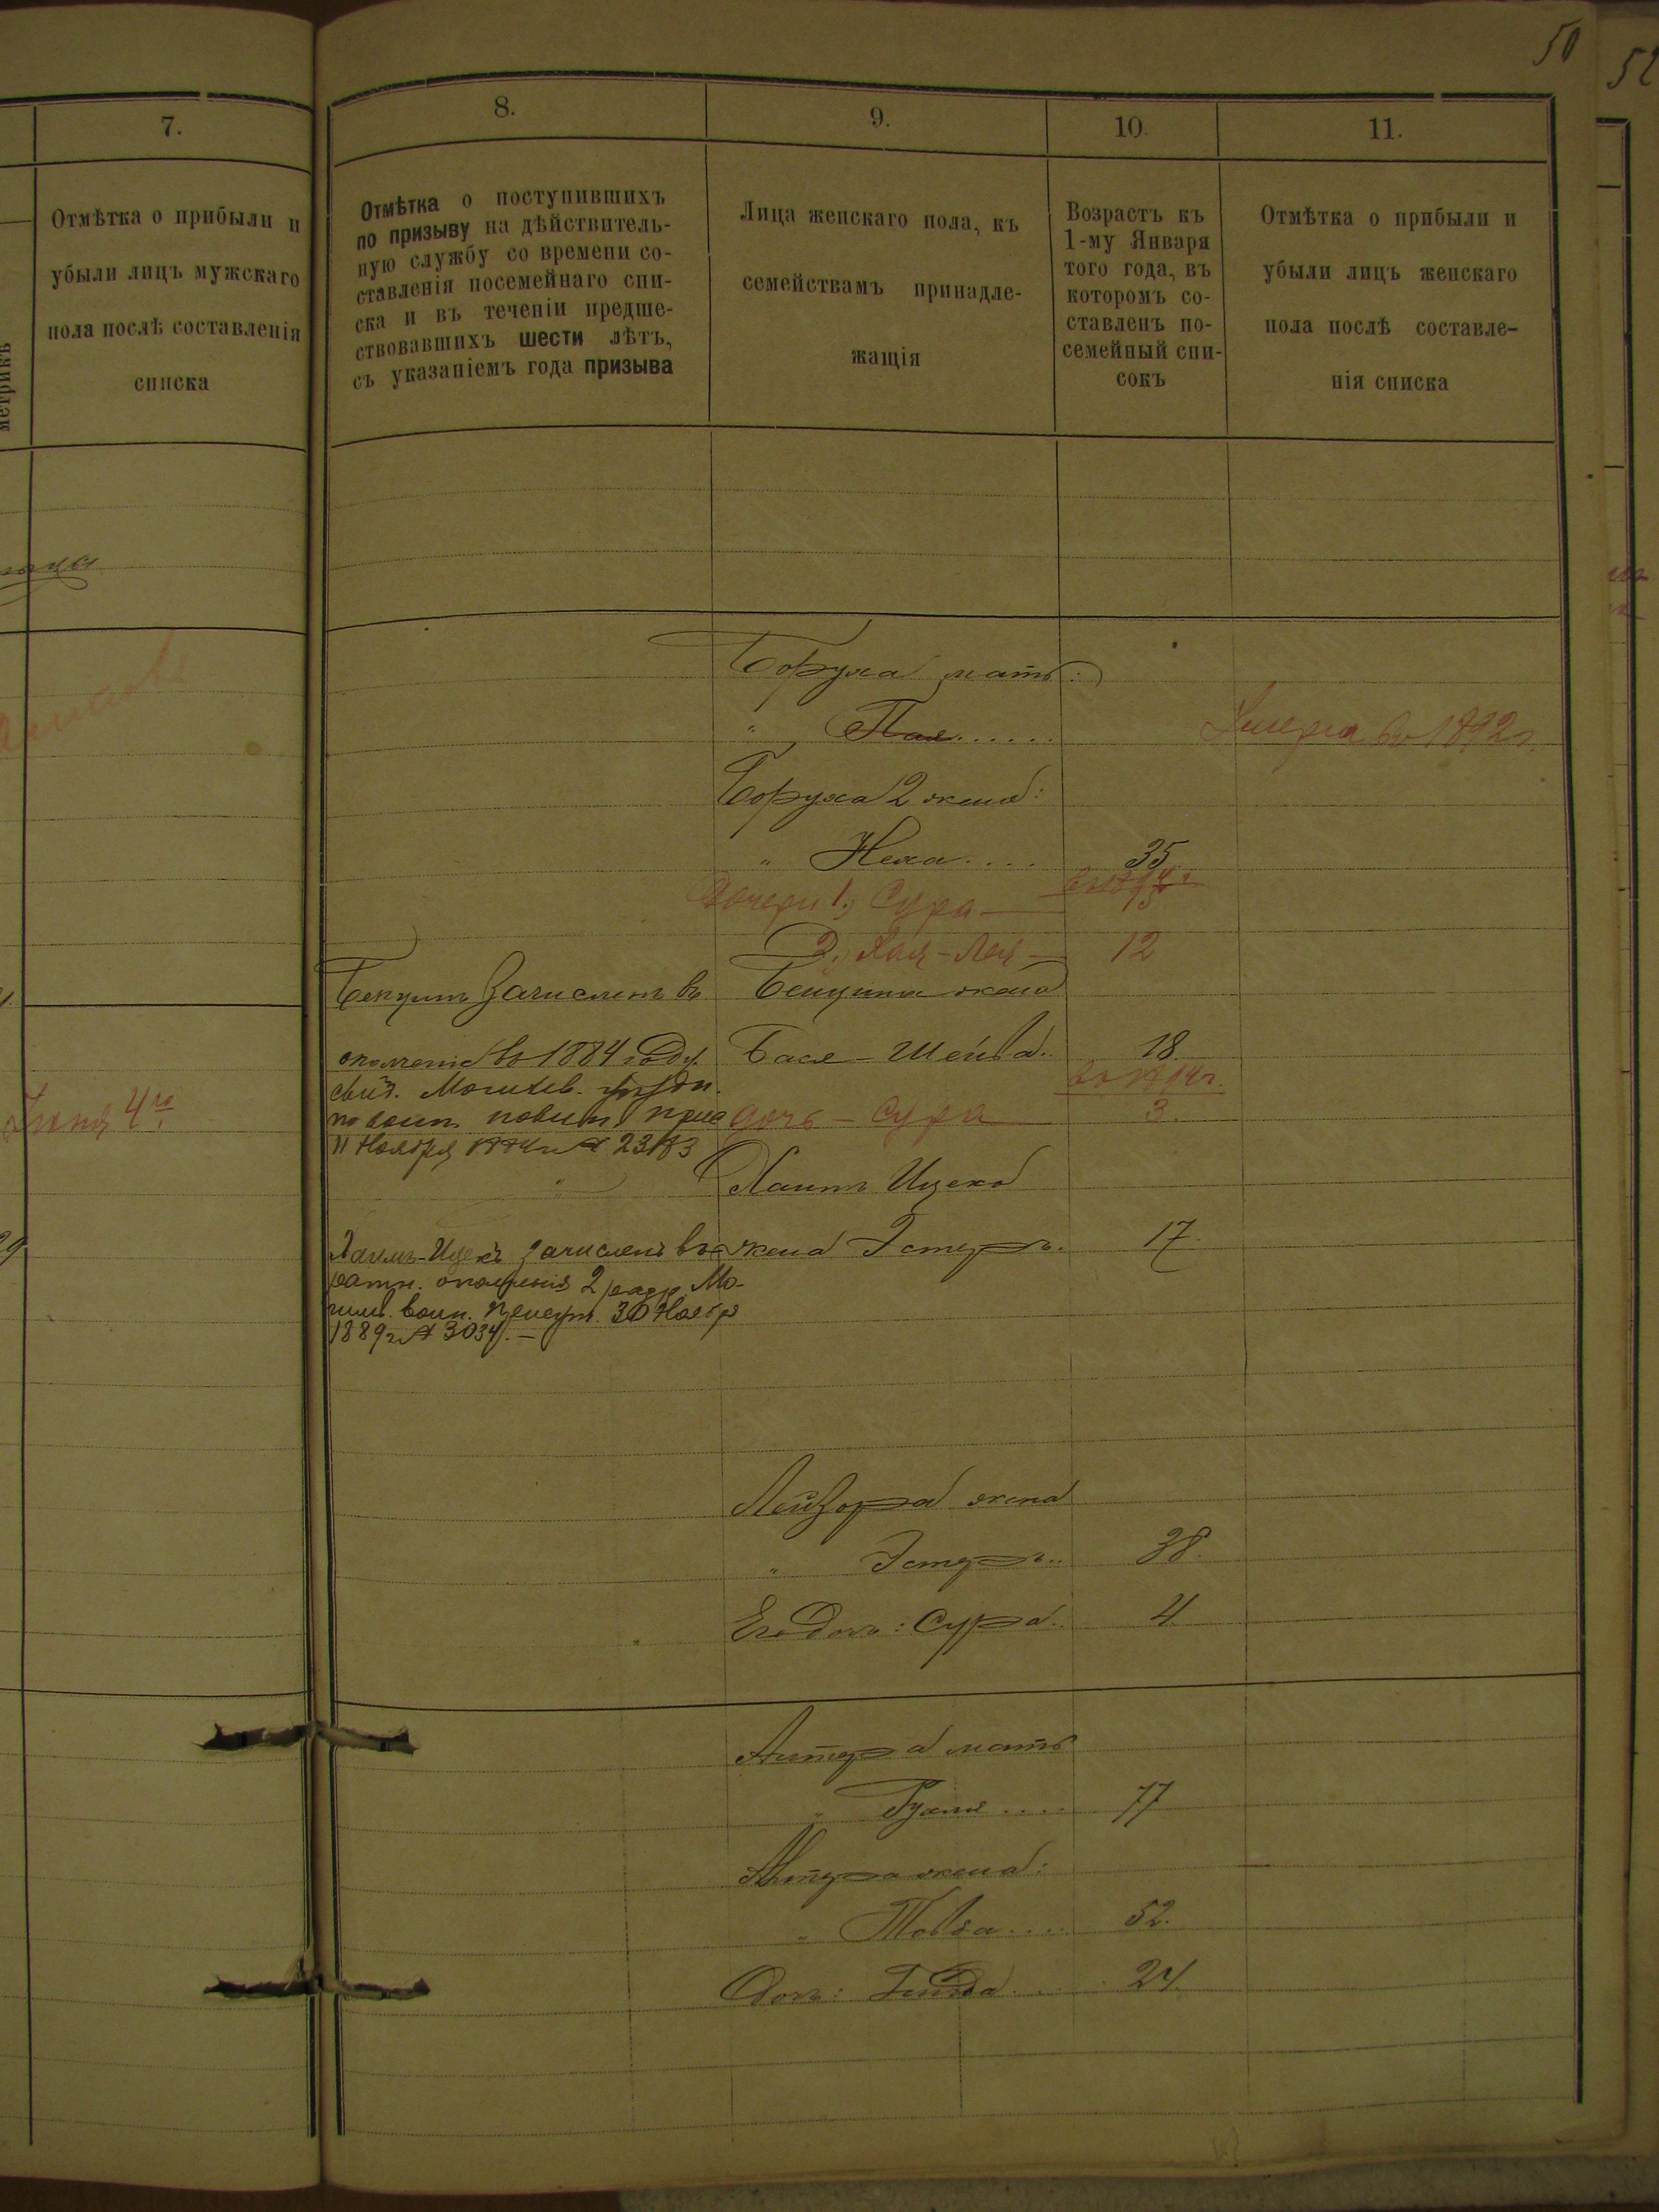 50
52
7.
8.
9.
10.
11.
Отмѣтка о прибыли и
убыли лицъ мужскаго
пола послѣ составленія
списка
Отмѣтка о поступившихъ
по призыву на дѣйствитель-
ную службу со времени со-
ставленія посемейнаго спи-
ска и въ теченіи предше-
ствовавшихъ шести лѣтъ,
съ указаніемъ года призыва
Лица женскаго пола, къ
семействамъ принадле-
жащія
Возрастъ къ
1-му Января
того года, въ
которомъ со-
ставленъ по-
семейный спи-
сокъ
Отмѣтка о прибыли и
убыли лицъ женскаго
пола послѣ составле-
нія списка
Боруха мать:
" Умерла въ 1892 г.
Боруха 2 жена:
" Неха.... 35
Дочери 1) Сура —
2) Хая-Лея — 12
зачисленъ въ жена
ополченіе въ 1884 году. Бася-Шейва. 18.
свид. Могилев. уѣздн.
по воин. повин. прис
11 Ноября № 23183
дочь — Сура 3.
Іюня 4го
Хаимъ Ицека
Хаимъ-Ицекъ зачисленъ въ жена Эстеръ. 17.
ратн. ополченія 2 разр. Мо-
гилев. воин. присут. 30 Ноябр
1889 г № 3034. —
Лейзора жена
" Эстеръ.. 38.
Его дочь: Сура.. 4
Алтера мать
" .... 77
Алтера жена:
" Товба.... 52.
Дочь: 24.